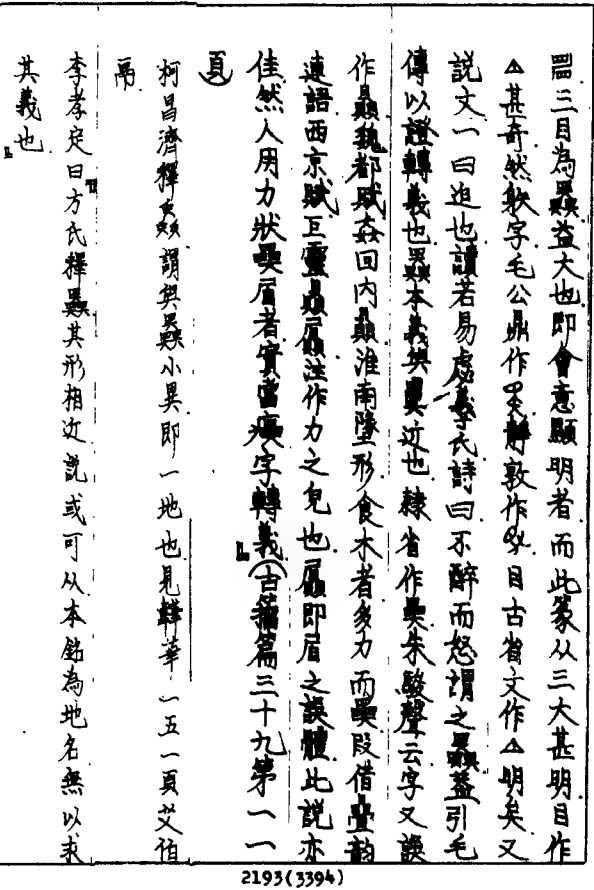 三目為𡚤益大也即會意顯明者而此篆从三大甚明目作
△甚奇然字毛公鼎作敦作目古省文作△明矣又
說文一曰迫也讀若易虙羲氏詩曰不醉而怒謂之𡚤益引毛
傳以證轉義也𡚤本義與近也隸省作奰朱駿聲云字又誤
作魏都賦姦回內淮南墬形食木者多力而奰段借疊韵
連語西京賦巨靈注作力之皃也即眉之誤體此說亦
佳然人用力狀奰眉者實當字轉義古籀篇三十九第一一
頁
柯昌濟釋謂與𡚤小異即一地也見韡華一五一頁艾伯
鬲
李孝定曰方氏釋𡚤其形相近說或可从本銘為地名無以求
其義也
2193(3394)